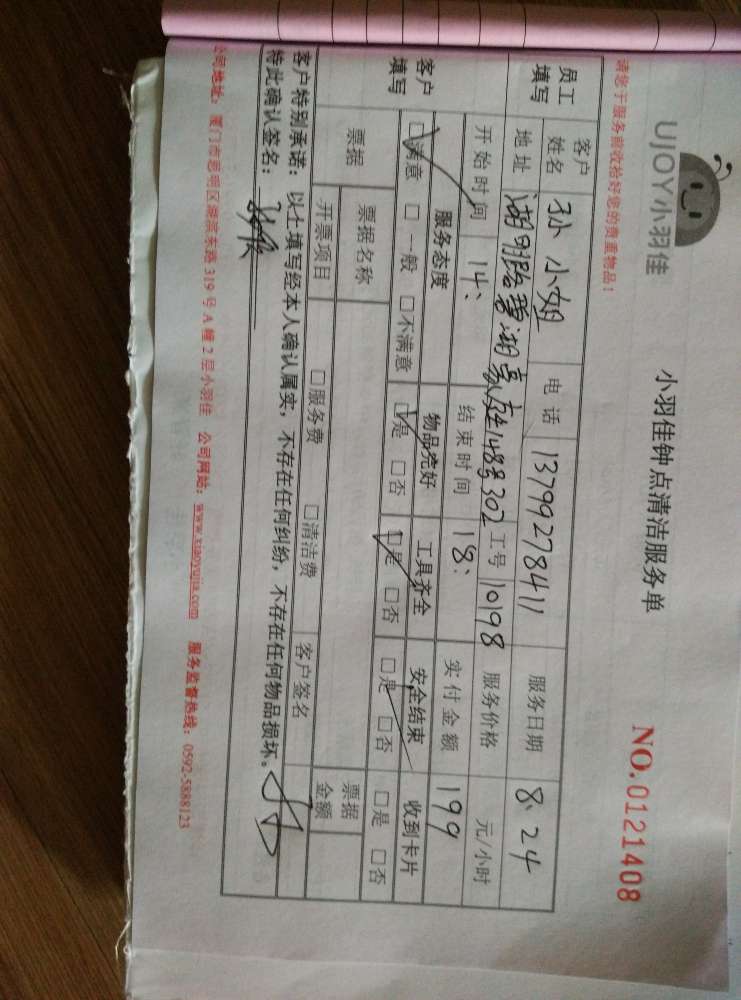 UJOY小羽佳
小羽佳钟点清洁服务单
NO.0121408
请您于服务前收拾好您的贵重物品!
员工填写
客户姓名 孙小姐 电话 13799278411 服务日期 8.24
地址 湖明路 湖豪庭148号302 工号 10198 服务价格 元/小时
开始时间 14: 结束时间 18: 实付金额 199
客户填写
服务态度 物品完好 工具齐全 安全结束 收到卡片
□满意 □一般 □不满意 □是 □否 □是 □否 □是 □否 □是 □否
票据 票据名称 票据金额
开票项目 □服务费 □清洁费 客户签名
客户特别承诺:以上填写经本人确认属实,不存在任何纠纷,不存在任何物品损坏。
特此确认签名:
公司地址:厦门市思明区湖滨东路319号A幢2层小羽佳 公司网站:www.xiaoyujia.com 服务监督热线:0592-5888123